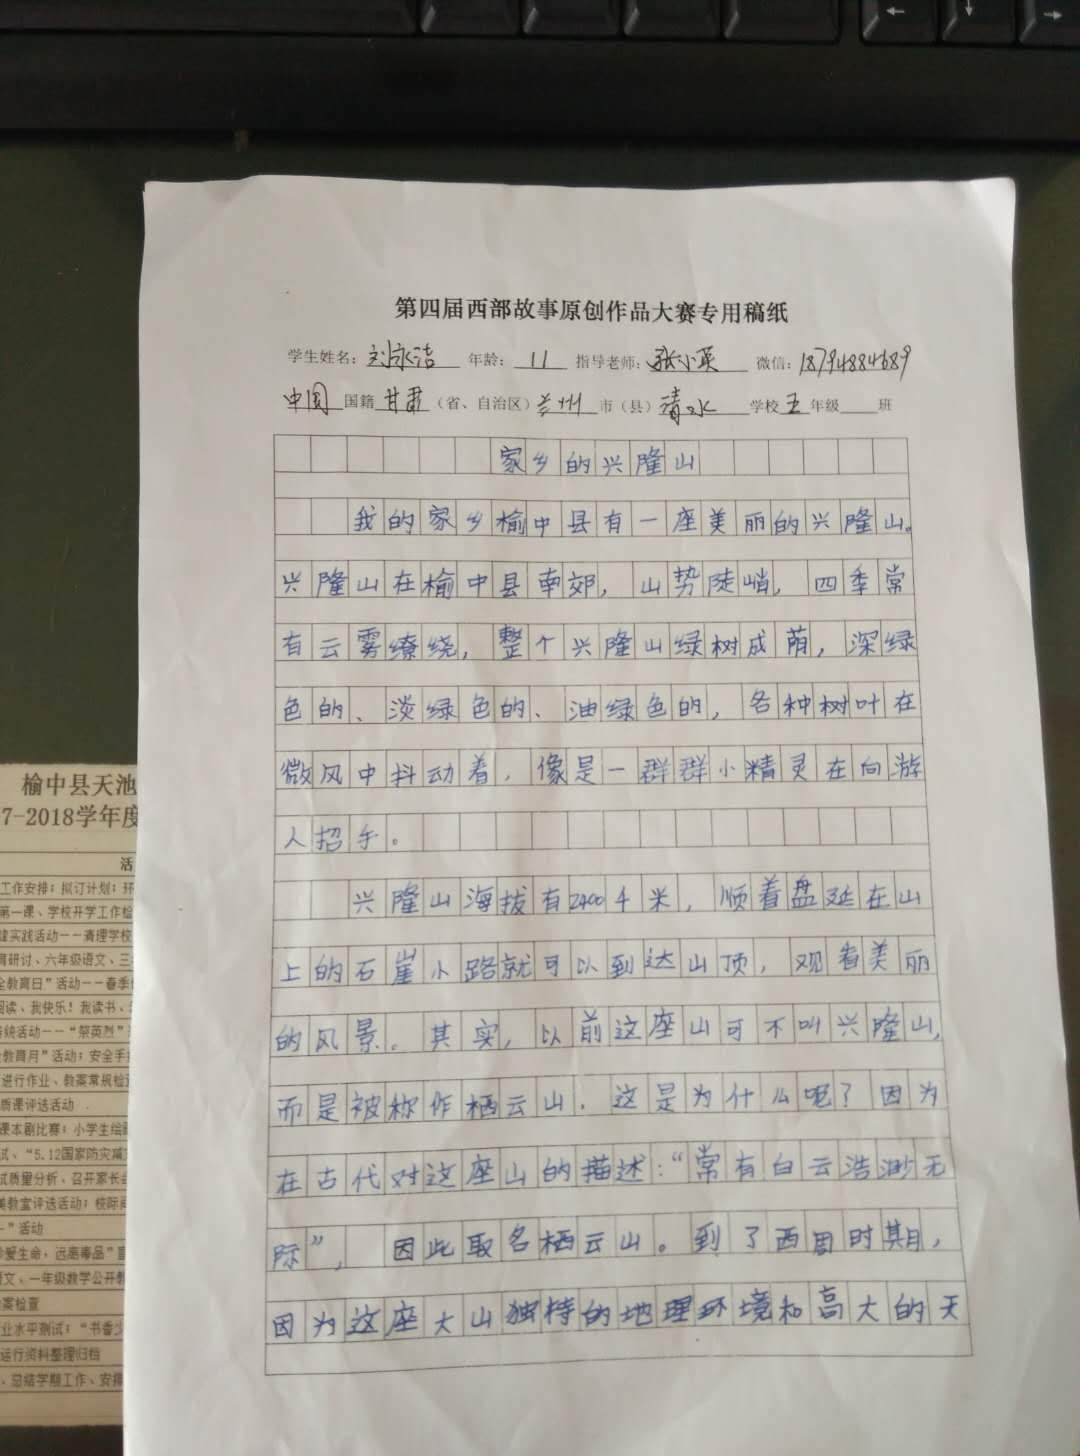 第四届西部故事原创作品大赛专用稿纸
学生姓名：刘永洁 年龄：11 指导老师：张小英 微信：18794884689
中国 国籍 甘肃（省、自治区）兰州 市（县）清水 学校 五 年级 班
家乡的兴隆山
我的家乡榆中县有一座美丽的兴隆山。
兴隆山在榆中县南郊，山势陡峭，四季常
有云雾缭绕，整个兴隆山绿树成荫，深绿
色的、淡绿色的、油绿色的，各种树叶在
微风中抖动着，像是一群群小精灵在向游
人招手。
兴隆山海拔有2400千米，顺着盘延在山
上的石崖小路就可以到达山顶，观看美丽
的风景。其实，以前这座山可不叫兴隆山，
而是被称作栖云山，这是为什么呢？因为
在古代对这座山的描述：“常有白云浩渺无
际”，因此取名栖云山。到了西周时期，
因为这座大山独特的地理环境和高大的天
榆中县天池
7-2018学年度
活
工作安排；拟订计划；环
第一课、学校开学工作检
建实践活动——清理学校
周研讨、六年级语文、三
全教育日”活动——春季
阅读、我快乐！我读书、
传统活动——“祭英烈”
教育月”活动：安全手
进行作业、教案常规检查
质课评选活动
课本剧比赛；小学生绘画
试、“5.12国家防灾减灾
试质量分析、召开家长会
美教室评选活动；校际间
”活动
珍爱生命，远离毒品”宣
语文、一年级数学公开教
教案检查
业水平测试；“书香少
运行资料整理归档
、总结学期工作、安排